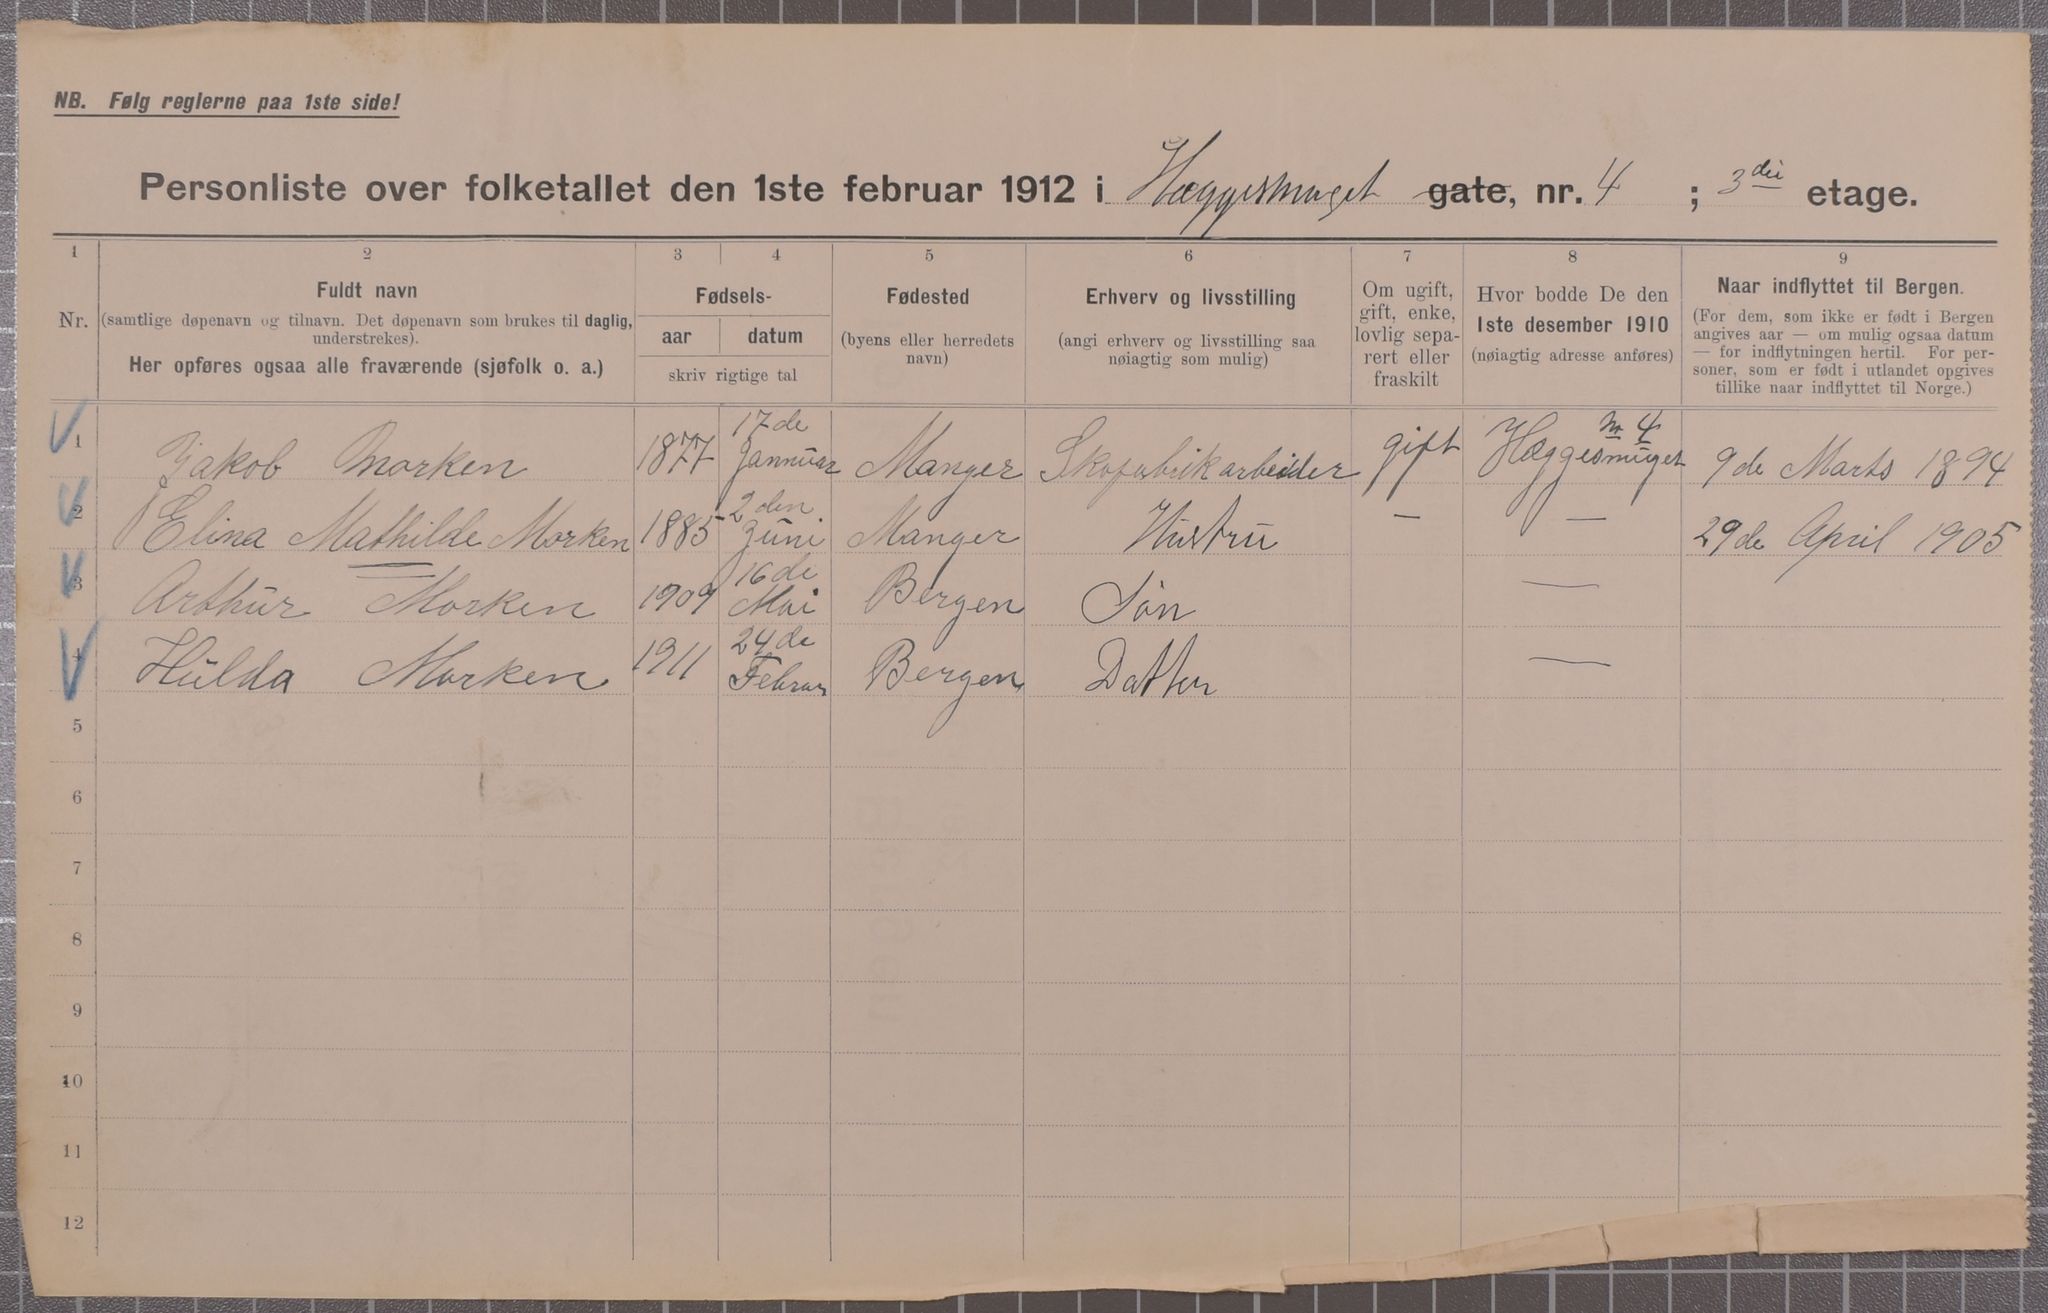 NB. Følg reglerne paa 1ste side!
Personliste over folketallet den 1ste februar 1912 i Hæggesmuget gate, nr. 4 ; 3die etage.
1 2 3 4 5 6 7 8 9
Nr.
Fuldt navn
(samtlige døpenavn og tilnavn. Det døpenavn som brukes til daglig,
understrekes).
Her opføres ogsaa alle fraværende (sjøfolk o. a.)
Fødsels-
aar datum
skriv rigtige tal
Fødested
(byens eller herredets
navn)
Erhverv og livsstilling
(angi erhverv og livsstilling saa
nøiagtig som mulig)
Om ugift,
gift, enke,
lovlig sepa-
rert eller
fraskilt
Hvor bodde De den
1ste desember 1910
(nøiagtig adresse anføres)
Naar indflyttet til Bergen.
(For dem, som ikke er født i Bergen
angives aar — om mulig ogsaa datum
— for indflytningen hertil. For per-
soner, som er født i utlandet opgives
tillike naar indflyttet til Norge.)
1 Jakob Morken 1877 17de Jannuar Manger Skofabrikarbeider gift Hæggesmuget nr 4 9de Marts 1894
2 Elina Mathilde Morken 1885 2den Juni Manger Hustru — — 29de April 1905
3 Arthur Morken 1909 16de Mai Bergen Søn —
4 Hulda Morken 1911 24de Februar Bergen Datter —
5
6
7
8
9
10
11
12